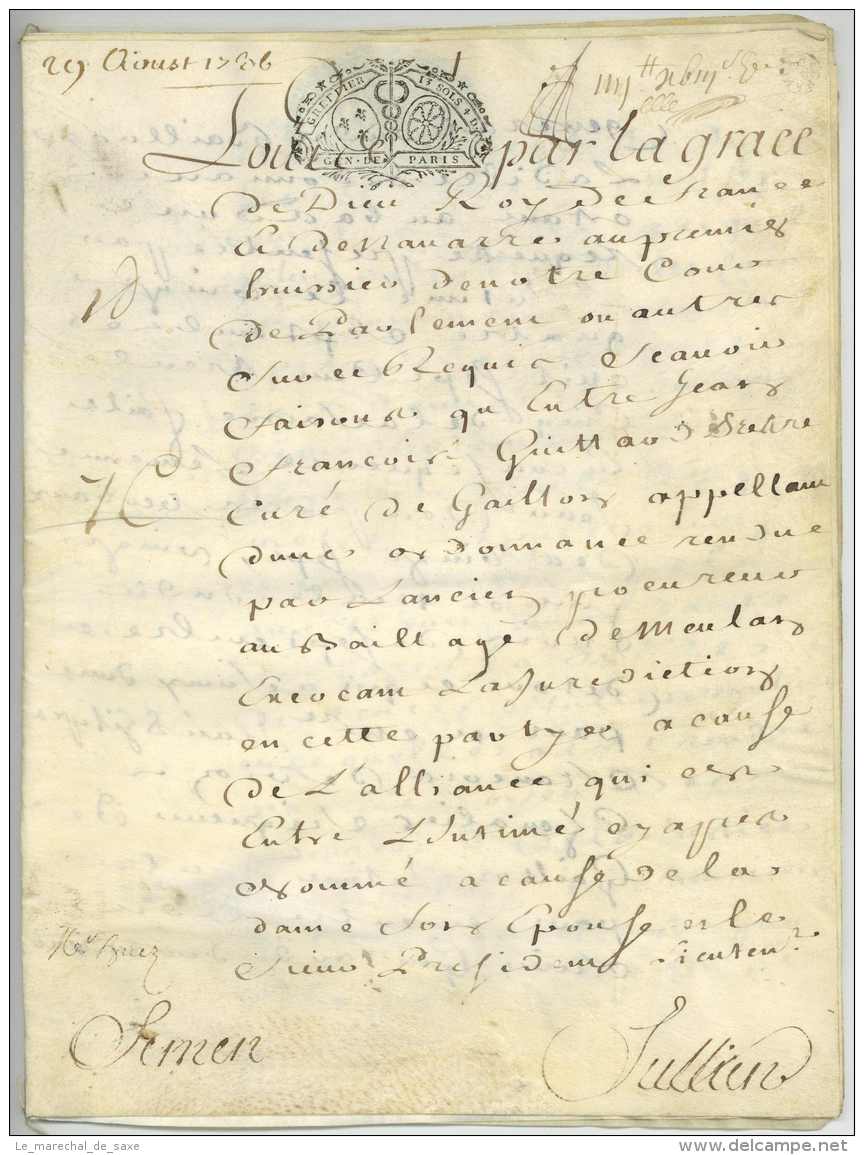 29 Aoust 1736
GREFFIER 13 SOLS 4 D
GEN. DE PARIS
Louis par la grace
de Dieu Roy de france
Et de Navarre au premier
huissier de notre Cour
de Parlement ou autre
sur ce Requis Scavoir
faisons qu Entre Jean
francois Guittard Prettre
Curé de Gaillon appellant
dune ordonnance rendue
par Lancien procureur
au Baillage de Meulan
Exercant La Jurediction
en cette partye a cause
de L'alliance qui est
Entre L'Intimé cy apres
nommé a cause de la
dame son Epouse et le
Sieur President Lieuten.t
Semen
Jullien
Le_marechal_de_saxe
delcampe.net